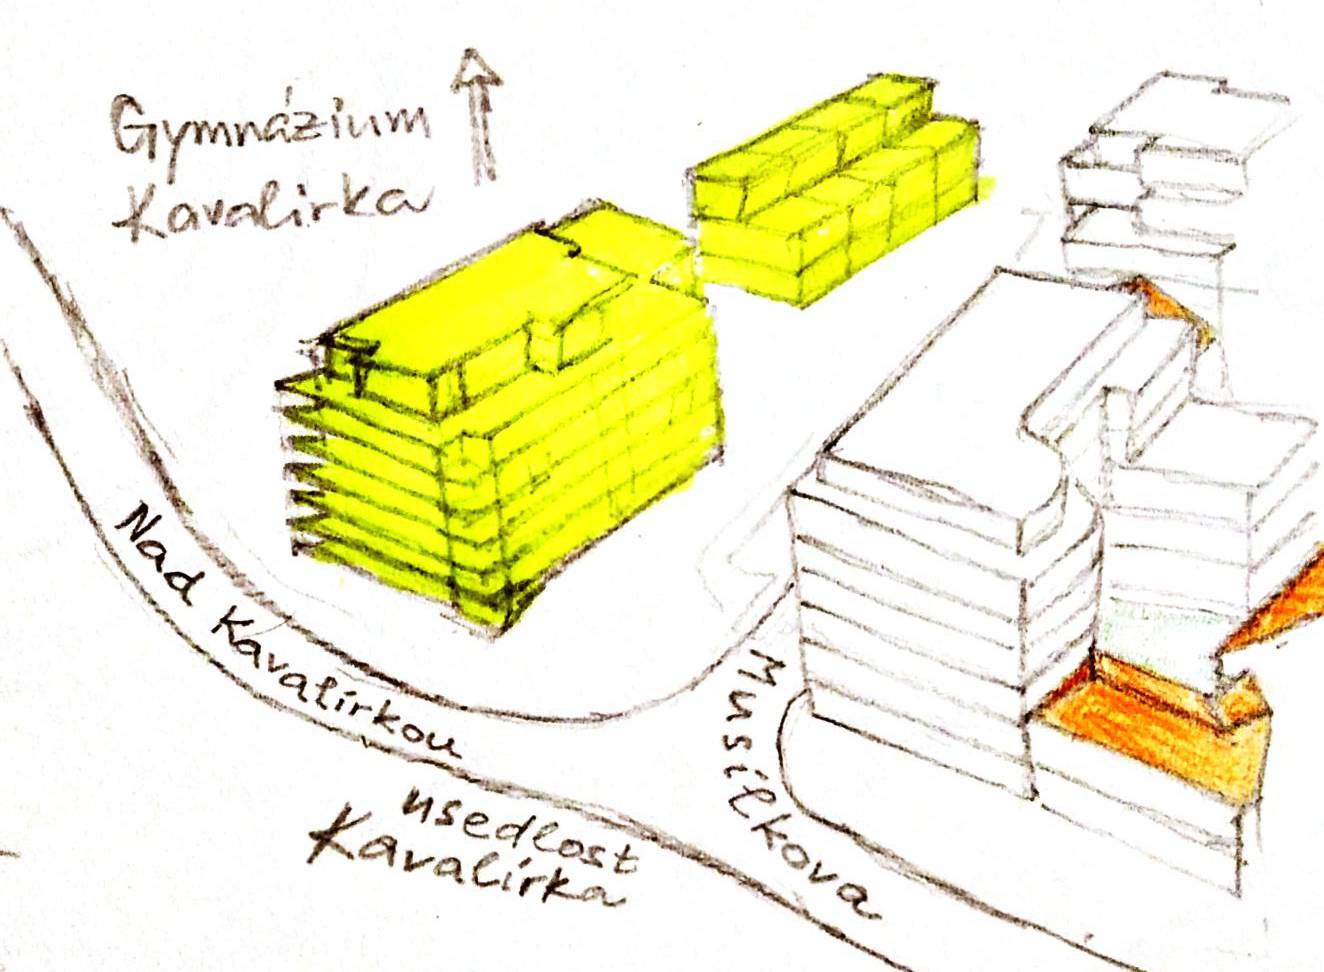 Gymnázium
Kavalírka
Nad Kavalírkou
usedlost
Kavalírka
Musílkova